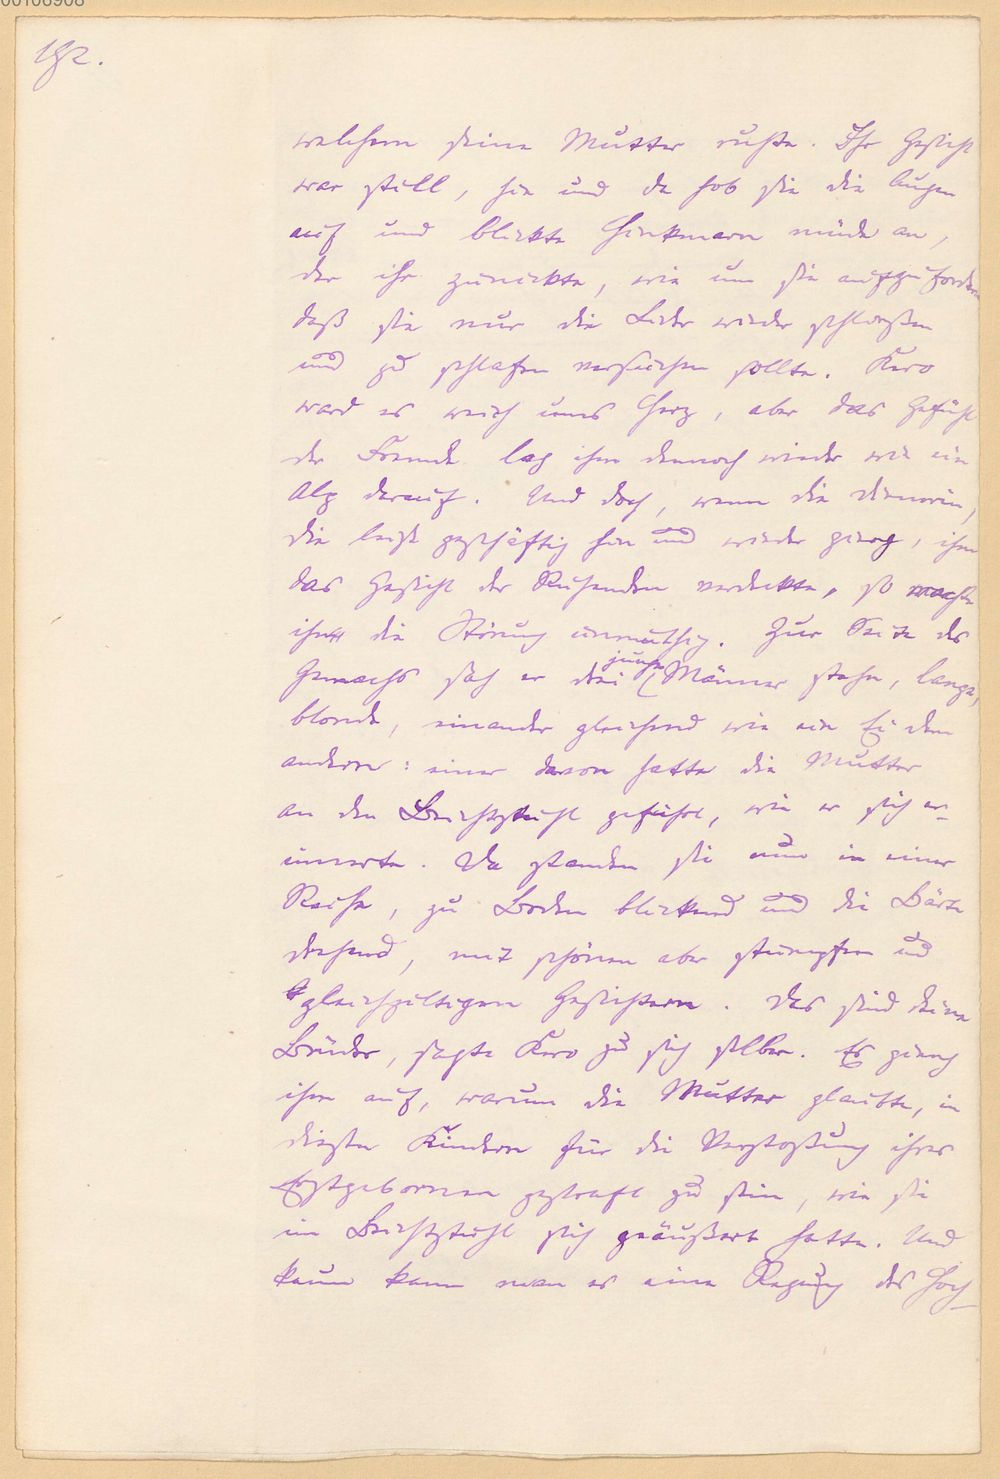 00106908
182.
welchem seine Mutter ruhte. Ihr Gesicht
war still, hie und da hob sie die Augen
auf und blickte Hinkmarn müde an,
der ihr zunickte, wie um sie aufzufordern
daß sie nur die Lider wieder schließen
und zu schlafen versuchen sollte. Kero
ward es weich ums Herz, aber das Gefühl
der Fremde lag ihm dennoch wieder wie ein
Alp darauf. Und doch, wenn die Dienerin,
die leise geschäftig hin und wieder gieng, ihm
das Gesicht der Ruhenden verdeckte, so machte
ihn die Störung unmuthig. Zur Seite des
Gemachs sah er drei junge Männer stehn, lange,
blonde, einander gleichend wie ein Ei dem
andern: einer davon hatte die Mutter
an den Beichtstuhl geführt, wie er sich er-
innerte. Da standen sie nun in einer
Reihe, zu Boden blickend und die Bärte
drehend, mit schönen aber stumpfen und
gleichgiltigen Gesichtern. Das sind deine
Brüder, sagte Kero zu sich selber. Es gieng
ihm auf, warum die Mutter glaubte, in
diesen Kindern für die Verstoßung ihres
Erstgebornen gestraft zu sein, wie sie
im Beichtstuhl sich geäußert hatte. Und
kaum kann man es eine Regung des Hoch-